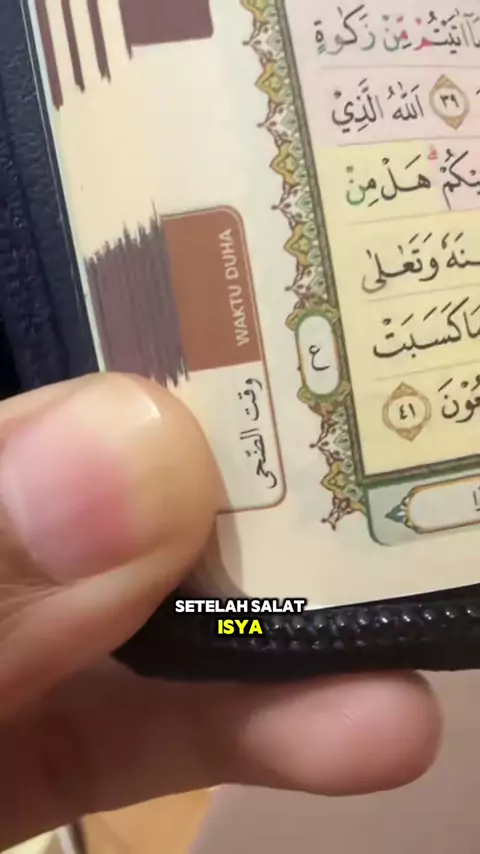 آتَيْتُمْ مِّنْ زَكٰوةٍ
٣٩ اَللّٰهُ الَّذِيْ
هَلْ مِنْ
وَتَعٰلٰى
مَا كَسَبَتْ
٤١
ع
WAKTU DUHA
وقت الضّحى
SETELAH SALAT
ISYA